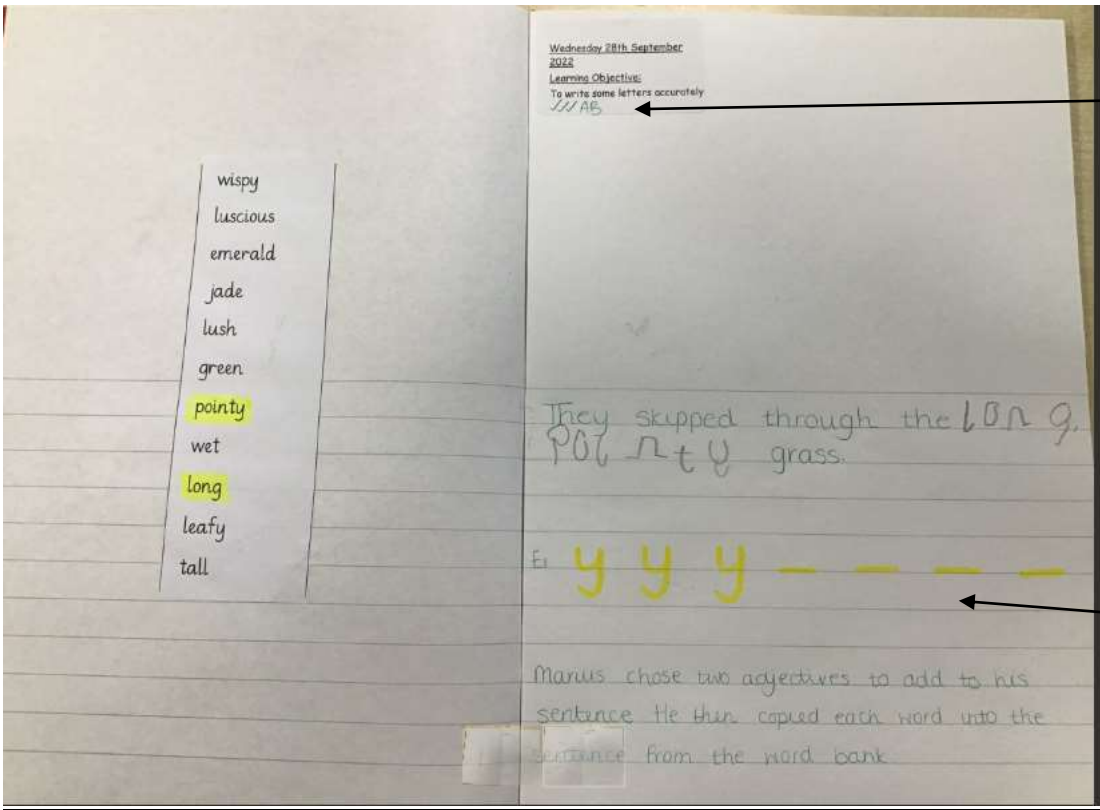 wispy
luscious
emerald
jade
lush
green
pointy
wet
long
leafy
tall
Wednesday 28th September
2022
Learning Objective:
To write some letters accurately
/// AB
They skipped through the long,
pointy grass.
E1 y y y _ _ _ _
Marius chose two adjectives to add to his
sentence. He then copied each word into the
sentence from the word bank